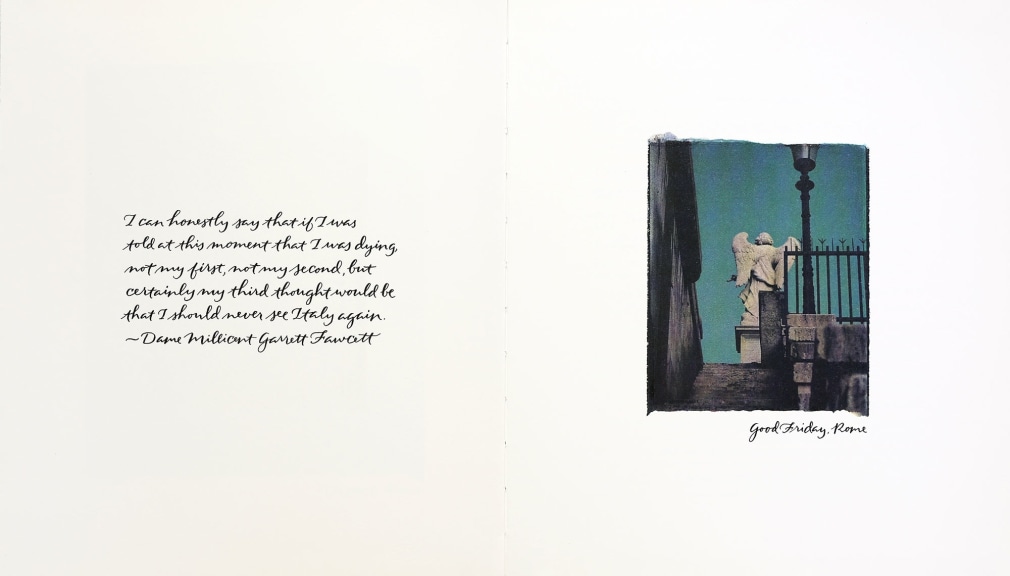 I can honestly say that if I was
told at this moment that I was dying,
not my first, not my second, but
certainly my third thought would be
that I should never see Italy again.
~ Dame Millicent Garrett Fawcett
Good Friday, Rome